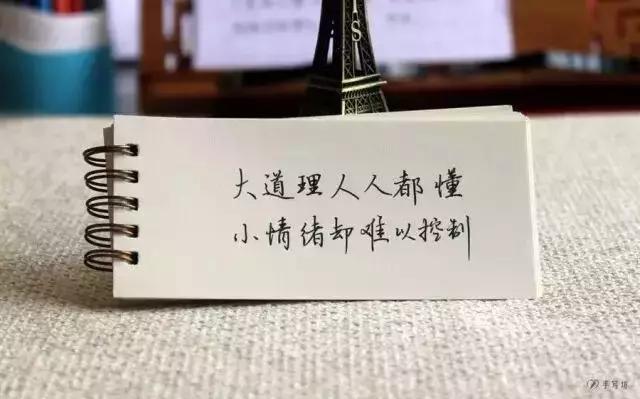 大道理人人都懂
小情绪却难以控制
S
手写坊